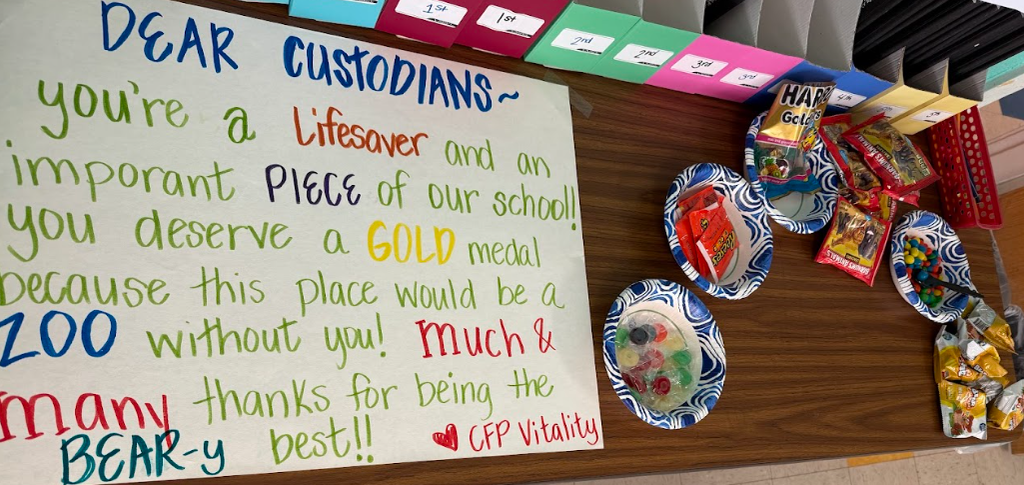 DEAR CUSTODIANS~
you're a Lifesaver and an
imporant PIECE of our school!
you deserve a GOLD medal
because this place would be a
ZOO without you! much &
many thanks for being the
BEAR-y best!!
CFP Vitality
1st
1st
2nd
2nd
3rd
3rd
HAR
Gol